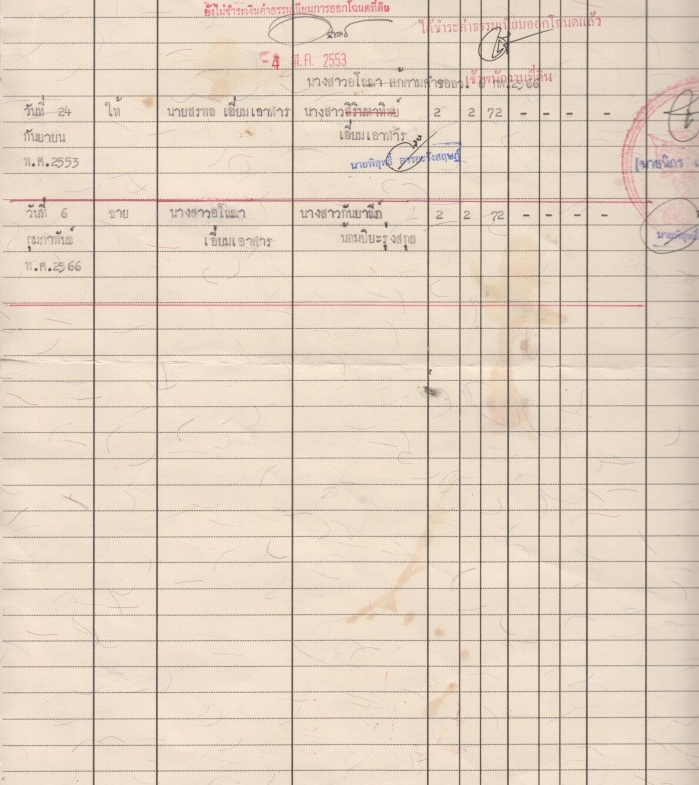 ยังไม่ชำระเงินค่าธรรมเนียมการออกโฉนดที่ดิน
ได้ชำระค่าธรรมเนียมออกโฉนดแล้ว
-4 มี.ค. 2553
เจ้าพนักงานที่ดิน
นางสาวอโณมา แก้ตามคำขอลว. 6 กพ.2566
วันที่ 24 ให้ นายสรพล เอี่ยมเอาฬาร นางสาวสิรินทาทิพย์ 2 2 72 - - - -
กันยายน เอี่ยมเอาฬาร
พ.ศ.2553 นายพิสุทธิ์ อารยะรังสฤษฎ์
(นายนิกร
วันที่ 6 ขาย นางสาวอโณมา นางสาวกันยาณัภ 2 2 72 - - - -
กุมภาพันธ์ เอี่ยมเอาฬาร น้อมปิยะรุ่งสกุล
นายพิสุทธิ์
พ.ศ.2566